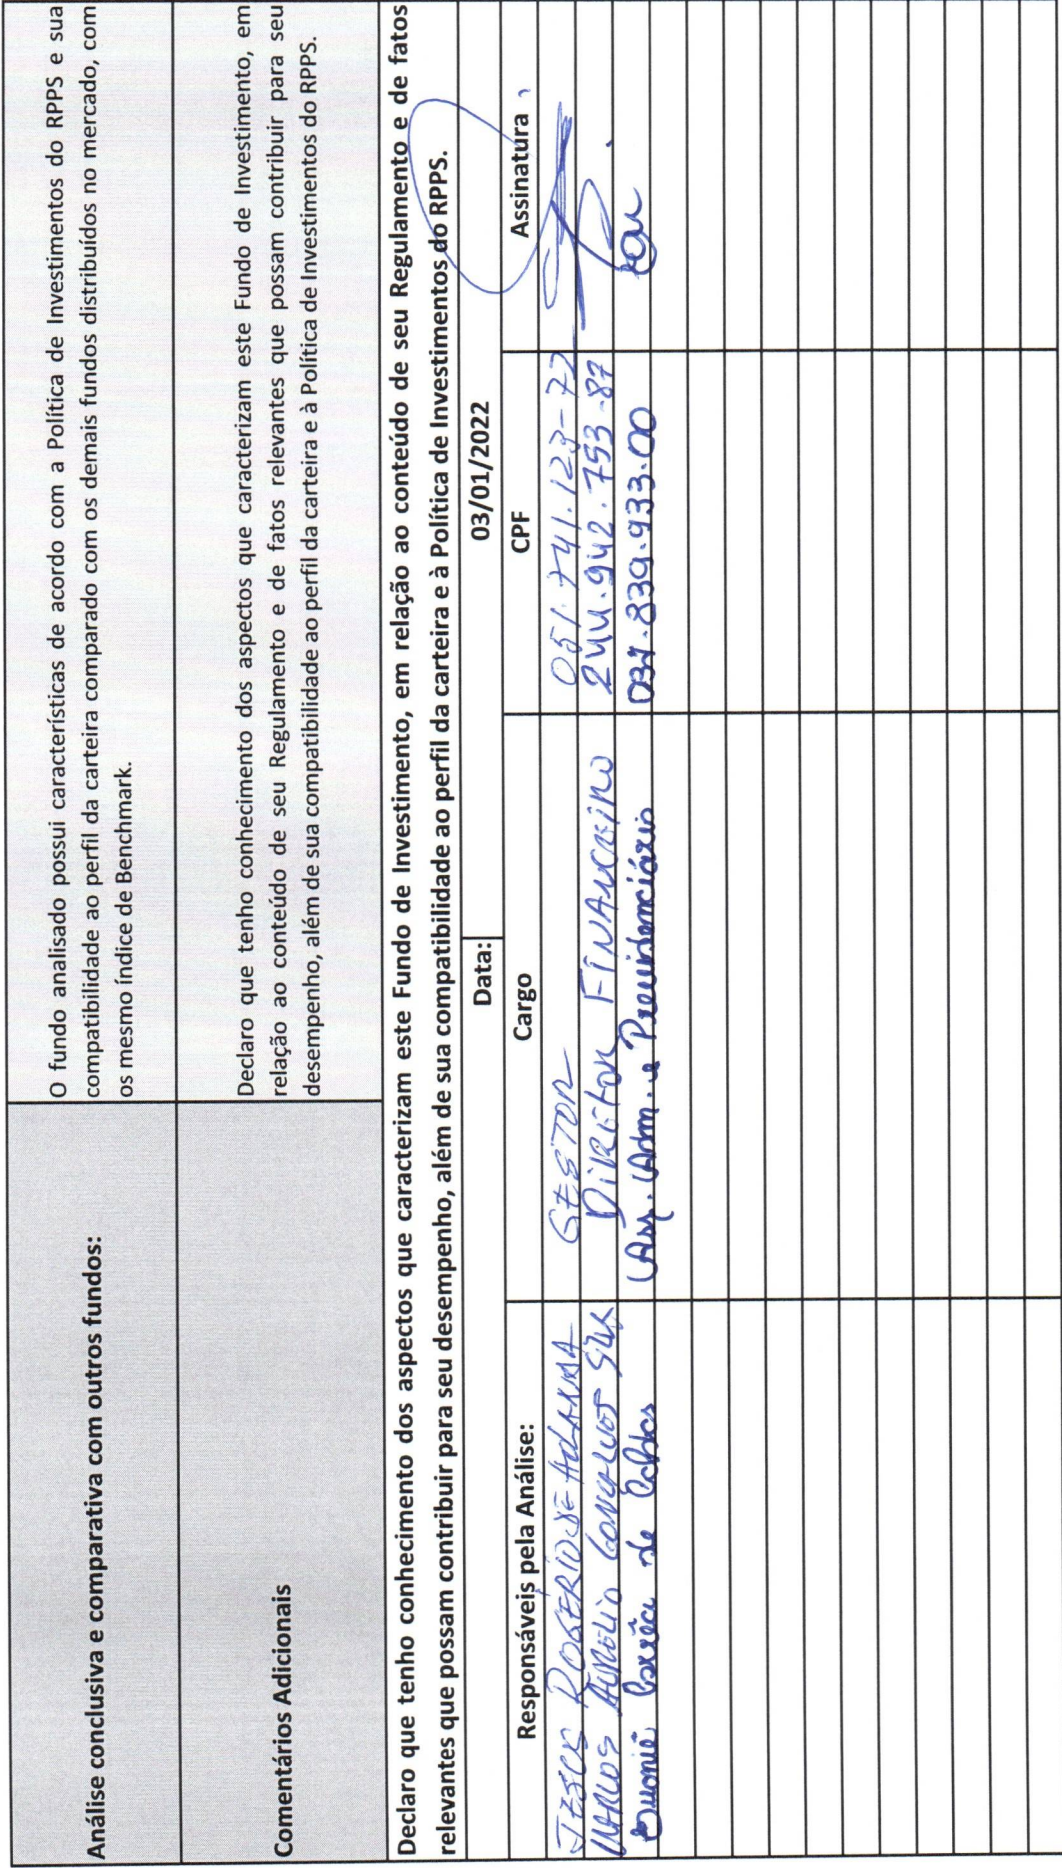 Análise conclusiva e comparativa com outros fundos:
O fundo analisado possui características de acordo com a Política de Investimentos do RPPS e sua
compatibilidade ao perfil da carteira comparado com os demais fundos distribuídos no mercado, com
os mesmo índice de Benchmark.
Comentários Adicionais
Declaro que tenho conhecimento dos aspectos que caracterizam este Fundo de Investimento, em
relação ao conteúdo de seu Regulamento e de fatos relevantes que possam contribuir para seu
desempenho, além de sua compatibilidade ao perfil da carteira e à Política de Investimentos do RPPS.
Declaro que tenho conhecimento dos aspectos que caracterizam este Fundo de Investimento, em relação ao conteúdo de seu Regulamento e de fatos
relevantes que possam contribuir para seu desempenho, além de sua compatibilidade ao perfil da carteira e à Política de Investimentos do RPPS.
Data: 03/01/2022
Responsáveis pela Análise: Cargo CPF Assinatura
ROGÉRIO DE GESTOR 051.741.123-72
MARCOS AURELIO DIRETOR FINANCEIRO 244.942.753-87
de Adm. e Previdenciário 037.839.933.00